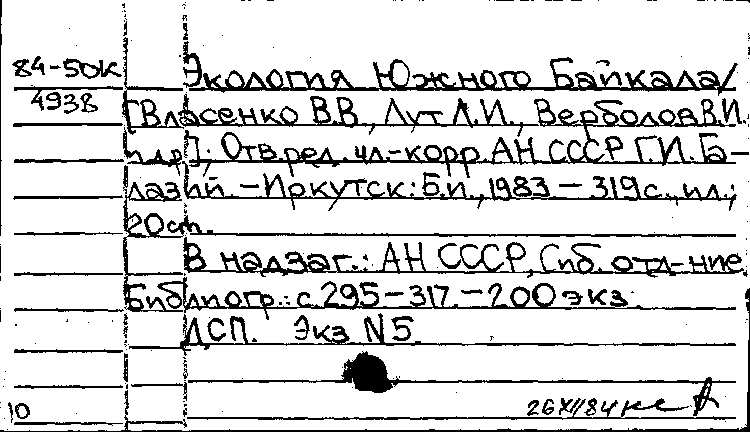 84-50К Экология Южного Байкала/
4938 [Власенко В.В., Лут Л.И., Верболов В.И.
и др]; Отв. ред. чл.-корр. АН СССР Г.И. Га-
лазий. – Иркутск: Б.и., 1983 – 319 с., ил.;
20 см.
В надзаг.: АН СССР, Сиб. отд-ние.
Библиогр.: с. 295–317. – 200 экз.
ДСП. Экз N5.
10 26 XII 84